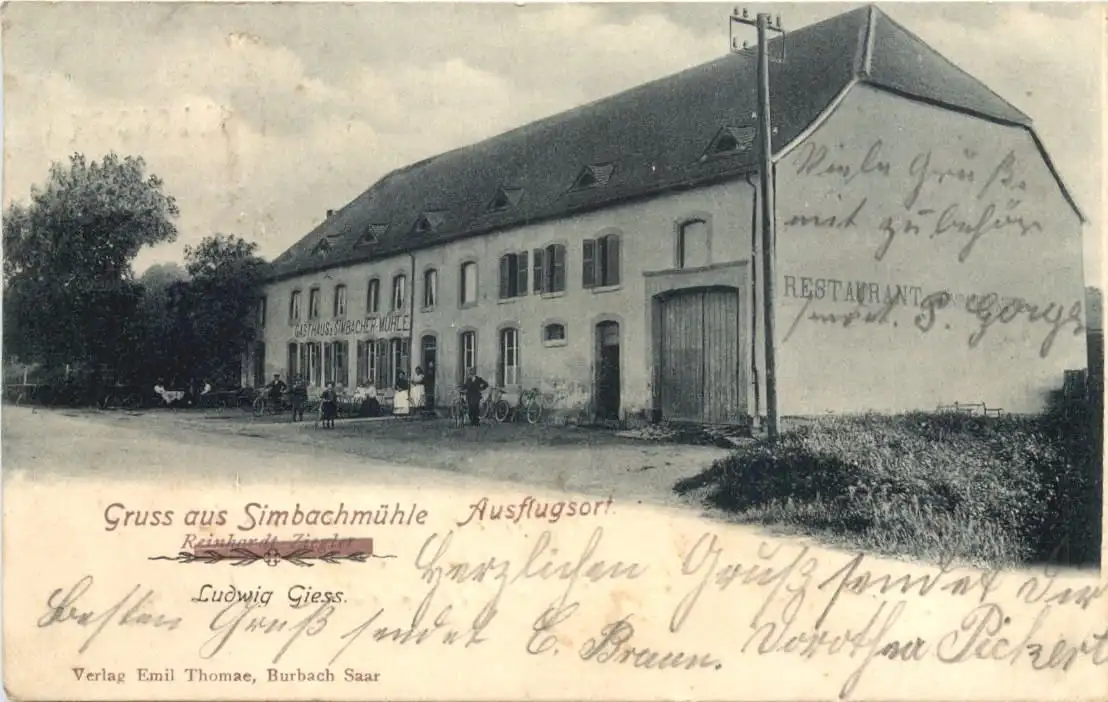 Viele Grüße
mit zubehör
RESTAURANT
sendet. P. Gorge
GASTHAUS z. SIMBACHER-MÜHLE
Gruss aus Simbachmühle Ausflugsort.
Reinhardt Ziegler
Ludwig Giess.
Herzlichen Gruß sendet Dir
Dorothea Pickert
Besten Gruß sendet E. Braun.
Verlag Emil Thomae, Burbach Saar